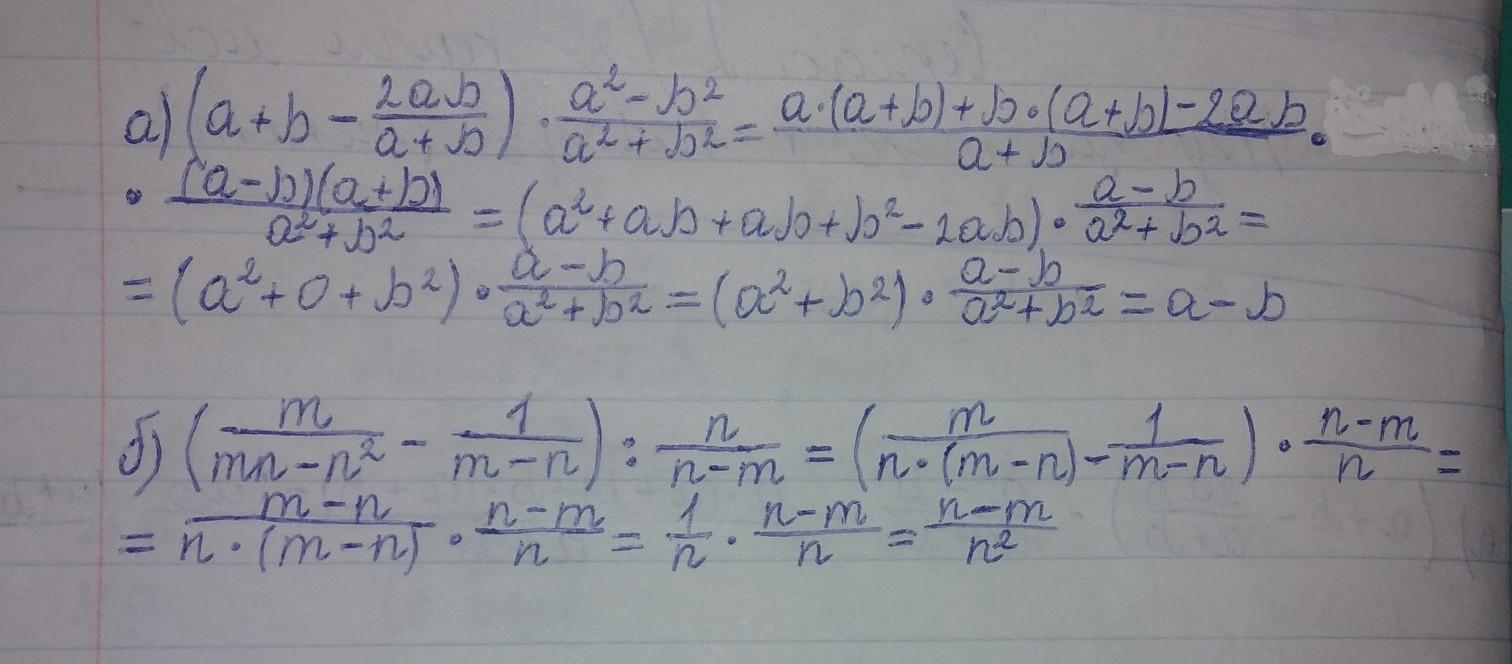 а) (a + b − 2ab/(a + b)) · (a² − b²)/(a² + b²) = (a·(a+b) + b·(a+b) − 2ab)/(a + b) ·
· ((a−b)(a+b))/(a² + b²) = (a² + ab + ab + b² − 2ab) · (a − b)/(a² + b²) =
= (a² + 0 + b²) · (a − b)/(a² + b²) = (a² + b²) · (a − b)/(a² + b²) = a − b
б) (m/(mn − n²) − 1/(m − n)) : n/(n − m) = (m/(n·(m − n)) − 1/(m − n)) · (n − m)/n =
= (m − n)/(n·(m − n)) · (n − m)/n = 1/n · (n − m)/n = (n − m)/n²